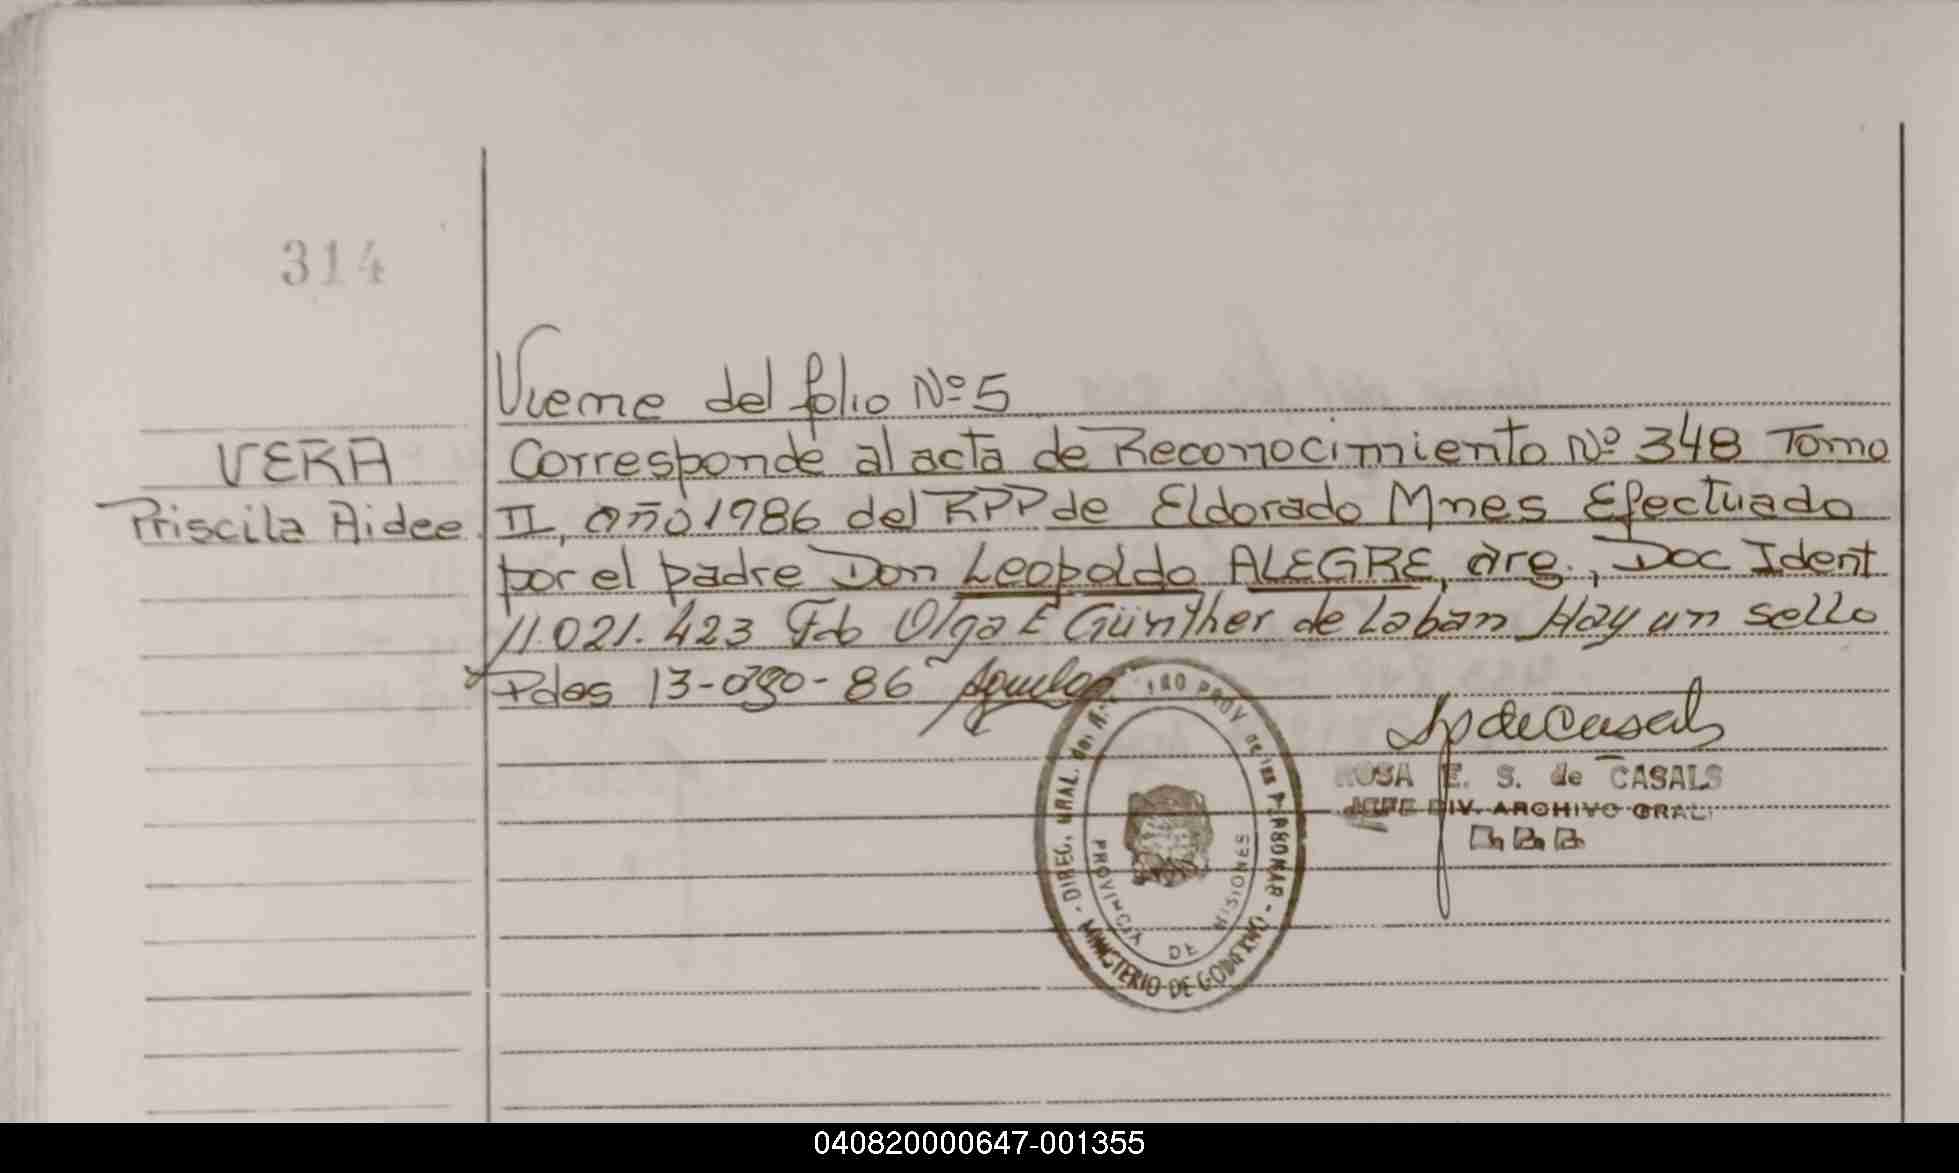 314
Vieme del folio Nº 5
VERA
Priscila Aidee
Corresponde al acta de Reconocimiento Nº 348 Tomo
II, año 1986 del RPP de Eldorado Mnes Efectuado
por el padre Don Leopoldo ALEGRE, arg., Doc Ident
11.021.423 Fdo Olga E Günther de Laban Hay un sello
Pdas 13-ago-86
ROSA E. S. de CASALS
JEFE DIV. ARCHIVO GRAL.
DIREC. GRAL. del PROV de las PERSONAS
MINISTERIO DE GOBIERNO
PROVINCIA DE MISIONES
040820000647-001355